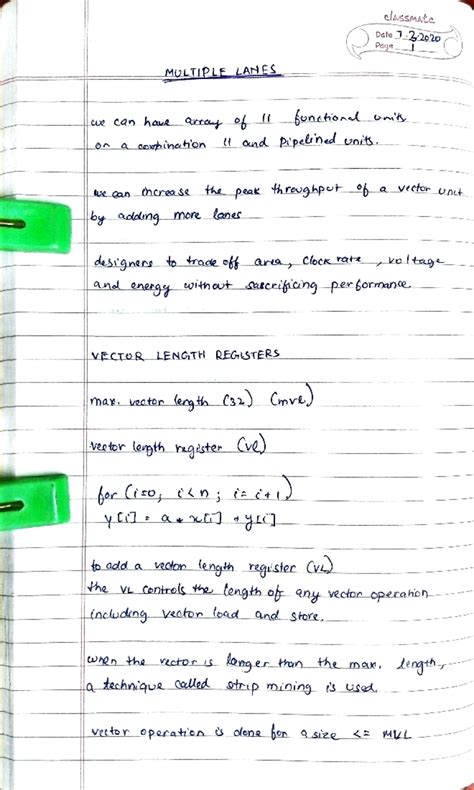 classmate
Date 7.2.2020
Page 1
MULTIPLE LANES
we can have array of || functional units
on a combination || and pipelined units.
we can increase the peak throughput of a vector unit
by adding more lanes
designers to trade off area, clock rate, voltage
and energy without sascrificing performance.
VECTOR LENGTH REGISTERS
max. vector length (32) (mvl)
vector length register (vl)
for (i=0; i<n; i=i+1)
y[i] = a * x[i] + y[i]
to add a vector length register (VL)
the VL controls the length of any vector operation
including vector load and store.
when the vector is langer than the max. length,
a technique called strip mining is used.
vector operation is done for a size <= MVL